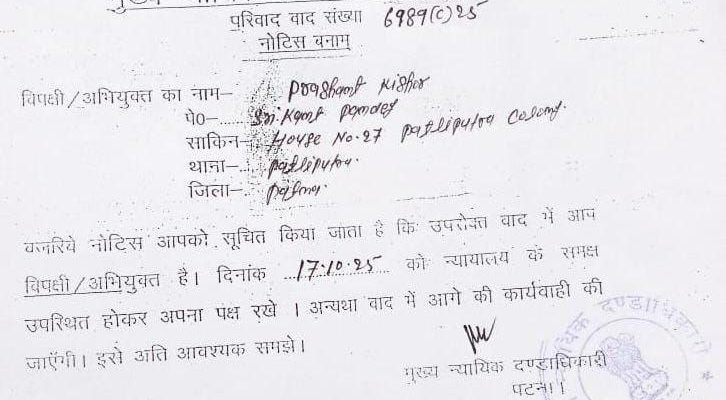 परिवाद वाद संख्या 6989(C)25
नोटिस बनाम्
विपक्षी/अभियुक्त का नाम– Prashant Kishor
पे0–..... Sri Kant Pandey
साकिन– House No. 27 Patliputra Colony.
थाना–.... Patliputra.
जिला–... Patna.
बजरिये नोटिस आपको सूचित किया जाता है कि उपरोक्त वाद में आप
विपक्षी/अभियुक्त है। दिनांक ...17.10.25..... को न्यायालय के समक्ष
उपस्थित होकर अपना पंक्ष रखे । अन्यथा वाद में आगे की कार्यवाही की
जाएँगी। इसे अति आवश्यक समझे।
मुख्य न्यायिक दण्डाधिकारी
पटना।।
यिक दण्डाधिकारी